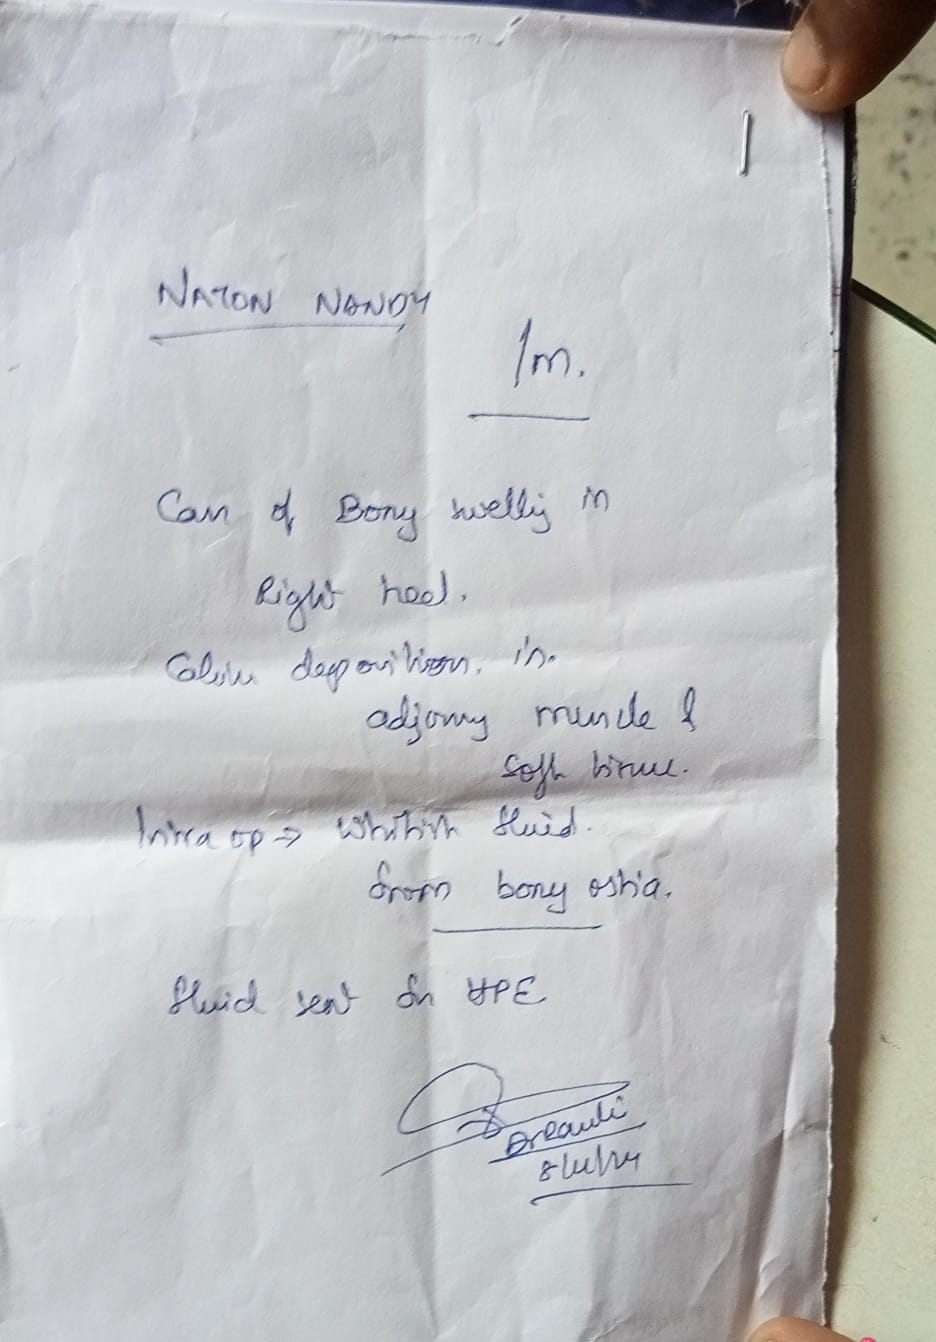 NATON NANDY
1m.
Case of Bony swelling in
Right heel.
Calcium deposition in
adjoining muscle &
soft tissue.
Intra op → Whitish fluid
from bony ostia.
fluid sent for HPE